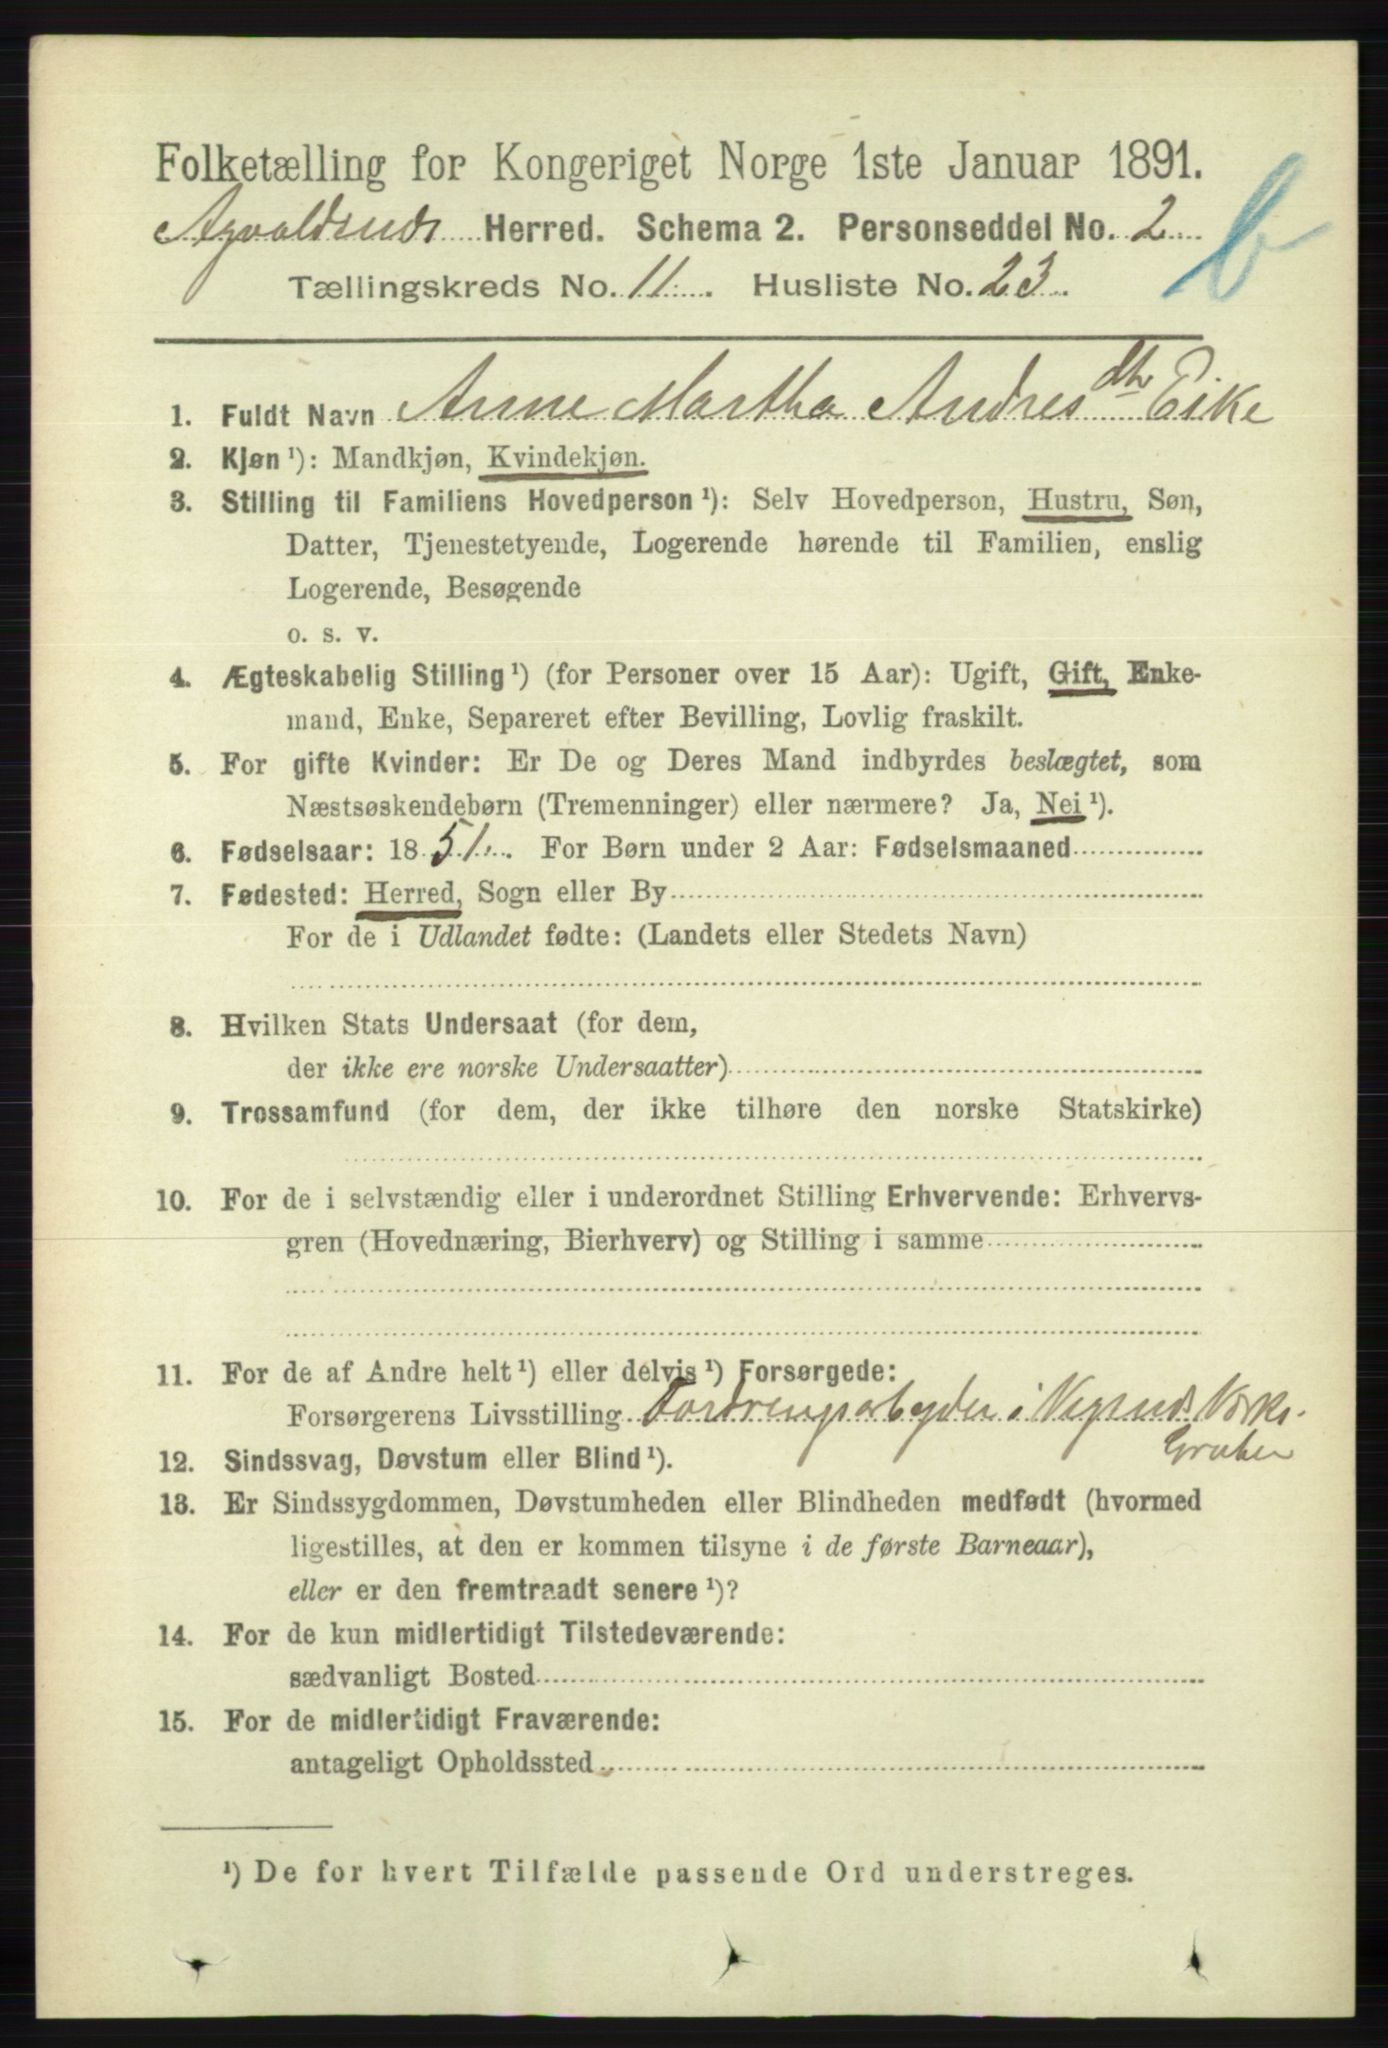 Folketælling for Kongeriget Norge 1ste Januar 1891.
Agvaldsnds Herred. Schema 2. Personseddel No. 2
b
Tællingskreds No. 11. Husliste No. 23.
1. Fuldt Navn Anne Martha Andresdtr Eike
2. Kjøn ¹): Mandkjøn, Kvindekjøn.
3. Stilling til Familiens Hovedperson ¹): Selv Hovedperson, Hustru, Søn,
Datter, Tjenestetyende, Logerende hørende til Familien, enslig
Logerende, Besøgende
o. s. v.
4. Ægteskabelig Stilling ¹) (for Personer over 15 Aar): Ugift, Gift, Enke-
mand, Enke, Separeret efter Bevilling, Lovlig fraskilt.
5. For gifte Kvinder: Er De og Deres Mand indbyrdes beslægtet, som
Næstsøskendebørn (Tremenninger) eller nærmere? Ja, Nei ¹).
6. Fødselsaar: 1851. For Børn under 2 Aar: Fødselsmaaned
7. Fødested: Herred, Sogn eller By
For de i Udlandet fødte: (Landets eller Stedets Navn)
8. Hvilken Stats Undersaat (for dem,
der ikke ere norske Undersaatter)
9. Trossamfund (for dem, der ikke tilhøre den norske Statskirke)
10. For de i selvstændig eller i underordnet Stilling Erhvervende: Erhvervs-
gren (Hovednæring, Bierhverv) og Stilling i samme
11. For de af Andre helt ¹) eller delvis ¹) Forsørgede:
Forsørgerens Livsstilling i Værks.
Gruber
12. Sindssvag, Døvstum eller Blind ¹).
13. Er Sindssygdommen, Døvstumheden eller Blindheden medfødt (hvormed
ligestilles, at den er kommen tilsyne i de første Barneaar),
eller er den fremtraadt senere ¹)?
14. For de kun midlertidigt Tilstedeværende:
sædvanligt Bosted
15. For de midlertidigt Fraværende:
antageligt Opholdssted
¹) De for hvert Tilfælde passende Ord understreges.